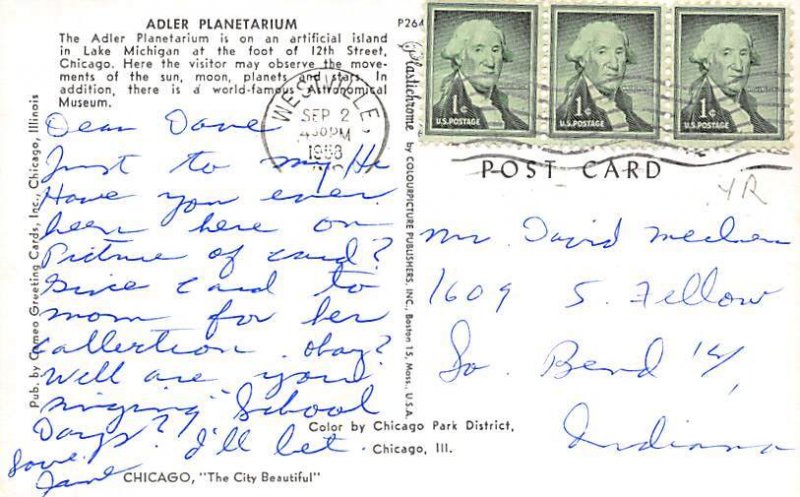 ADLER PLANETARIUM
The Adler Planetarium is on an artificial island
in Lake Michigan at the foot of 12th Street,
Chicago. Here the visitor may observe the move-
ments of the sun, moon, planets and stars. In
addition, there is a world-famous Astronomical
Museum.
Dear Dave
Just to say Hi
Have you ever
been here on
Picture of card?
Give card to
mom for her
collection. okay?
Well are you
singing "School
Days"? I'll bet.
Love.
Jane
CHICAGO, "The City Beautiful"
Pub. by Cameo Greeting Cards, Inc., Chicago, Illinois
P264
Plastichrome by COLOURPICTURE PUBLISHERS, INC., Boston 15, Mass., U.S.A.
WESTVILLE
SEP 2
4 PM
1958
1¢
U.S. POSTAGE
1¢
U.S. POSTAGE
1¢
U.S. POSTAGE
POST CARD
YR
Mr. David
1609 S. Fellow
So. Bend 14,
Indiana
Color by Chicago Park District,
Chicago, Ill.